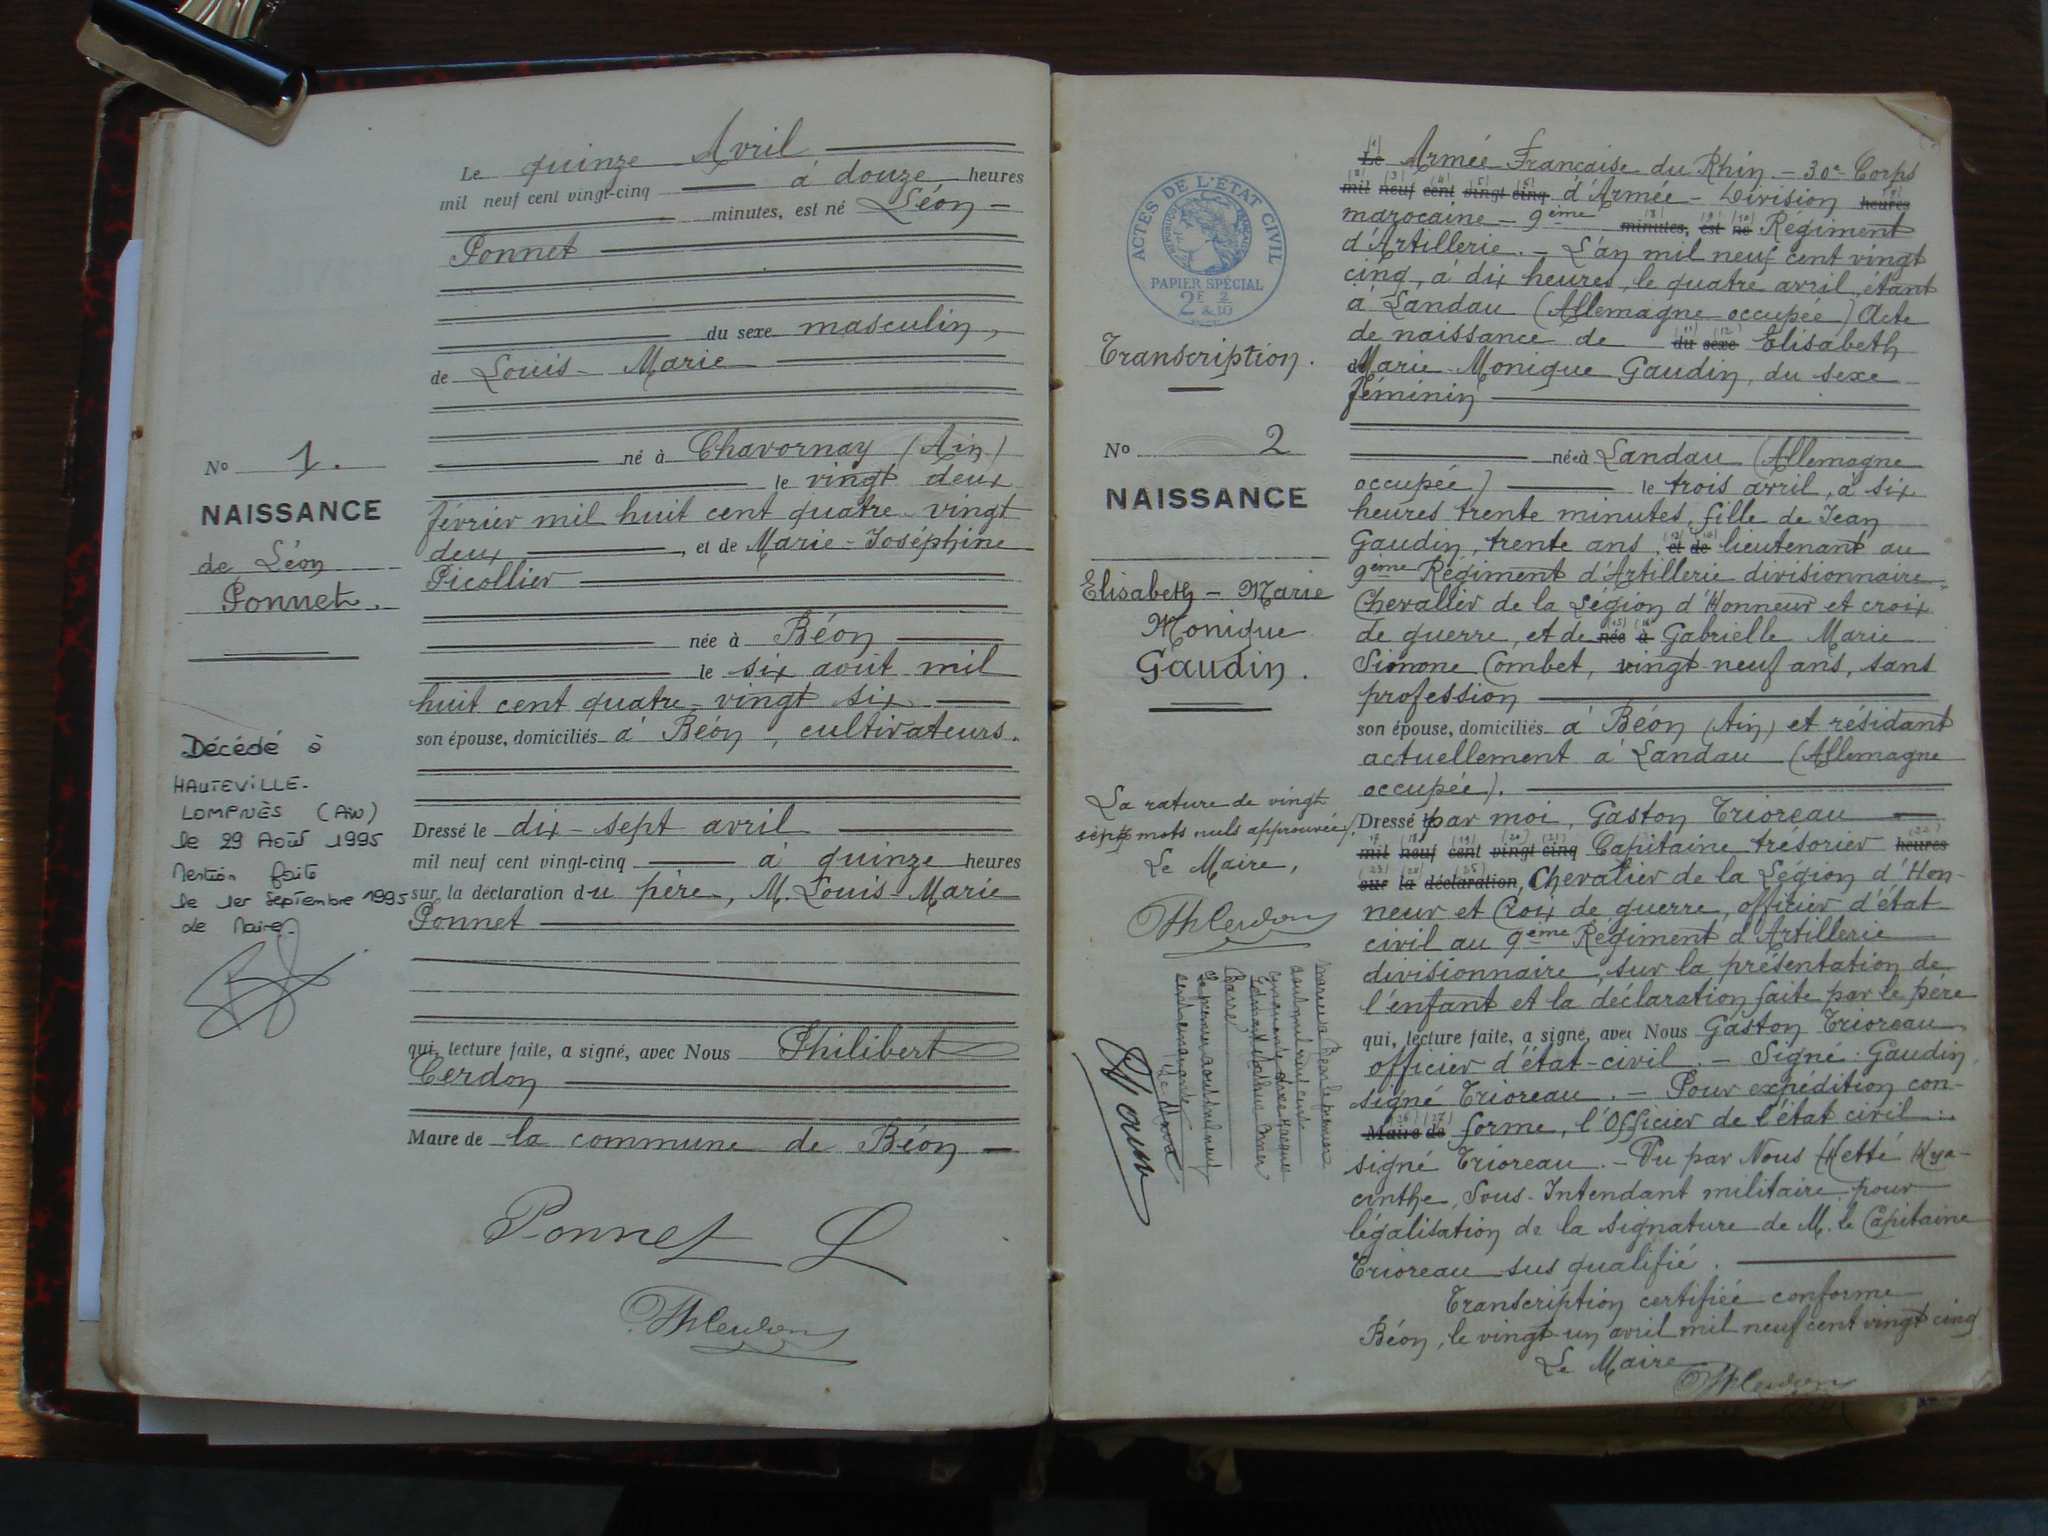 Le quinze Avril
mil neuf cent vingt-cinq à douze heures
minutes, est né Léon
Ponnet
du sexe masculin,
de Louis-Marie
né à Chavornay (Ain)
le vingt deux
février mil huit cent quatre-vingt
deux, et de Marie-Joséphine
Picollier
née à Béon
le six août mil
huit cent quatre-vingt six
son épouse, domiciliés à Béon, cultivateurs.
Dressé le dix-sept avril
mil neuf cent vingt-cinq à quinze heures
sur la déclaration du père, M. Louis-Marie
Ponnet
qui, lecture faite, a signé, avec Nous Philibert
Cerdon
Maire de la commune de Béon
Ponnet L
No 1.
NAISSANCE
de Léon
Ponnet.
Décédé à
HAUTEVILLE-
LOMPNÈS (Ain)
le 29 Août 1995
Mention faite
le 1er septembre 1995
Le Maire
ACTES DE L'ETAT CIVIL
PAPIER SPECIAL
2F & 2/10
Transcription.
No 2
NAISSANCE
Elisabeth-Marie
Monique
Gaudin.
La rature de vingt
sept mots nuls approuvée.
Le Maire,
Le Armée Française du Rhin - 30e Corps
mil neuf cent vingt cinq d'Armée - Division heures
marocaine - 9ème minutes, est né Régiment
d'Artillerie. - L'an mil neuf cent vingt
cinq, à dix heures, le quatre avril, étant
à Landau (Allemagne occupée) Acte
de naissance de du sexe Elisabeth
Marie Monique Gaudin, du sexe
féminin
née à Landau (Allemagne
occupée) le trois avril, à six
heures trente minutes, fille de Jean
Gaudin, trente ans, et de lieutenant au
9ème Régiment d'Artillerie divisionnaire
Chevalier de la Légion d'Honneur et croix
de guerre, et de née à Gabrielle Marie
Simone Combet, vingt-neuf ans, sans
profession
son épouse, domiciliés à Béon (Ain) et résidant
actuellement à Landau (Allemagne
occupée).
Dressé par moi, Gaston Trioreau
mil neuf cent vingt cinq Capitaine trésorier heures
sur la déclaration, Chevalier de la Légion d'Hon-
neur et Croix de guerre, officier d'état
civil au 9ème Régiment d'Artillerie
divisionnaire, sur la présentation de
l'enfant et la déclaration faite par le père
qui, lecture faite, a signé, avec Nous Gaston Trioreau
officier d'état-civil. - Signé: Gaudin
signé Trioreau. - Pour expédition con-
Maire de forme, l'Officier de l'état civil:
signé Trioreau. - Vu par Nous Hetté Hya-
cinthe, Sous-Intendant militaire pour
légalisation de la signature de M. le Capitaine
Trioreau sus qualifié.
Transcription certifiée conforme
Béon, le vingt-un avril mil neuf cent vingt cinq
Le Maire